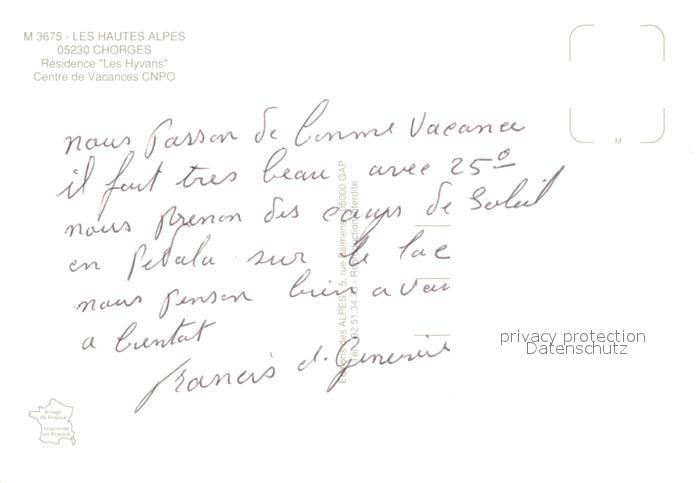 M 3675 - LES HAUTES ALPES
05230 CHORGES
Résidence "Les Hyvans"
Centre de Vacances CNPO
M
nous passon de bonne vacance
il fait tres beau avec 25°
nous prenon des coups de Soleil
en pedalu sur le lac
nous penson bien a vou
a bientat
Francis et Genevie
Editions des ALPES 5, rue 05000 GAP
Reproduction interdite
privacy protection
Datenschutz
Image
de France
Imprimée
en France